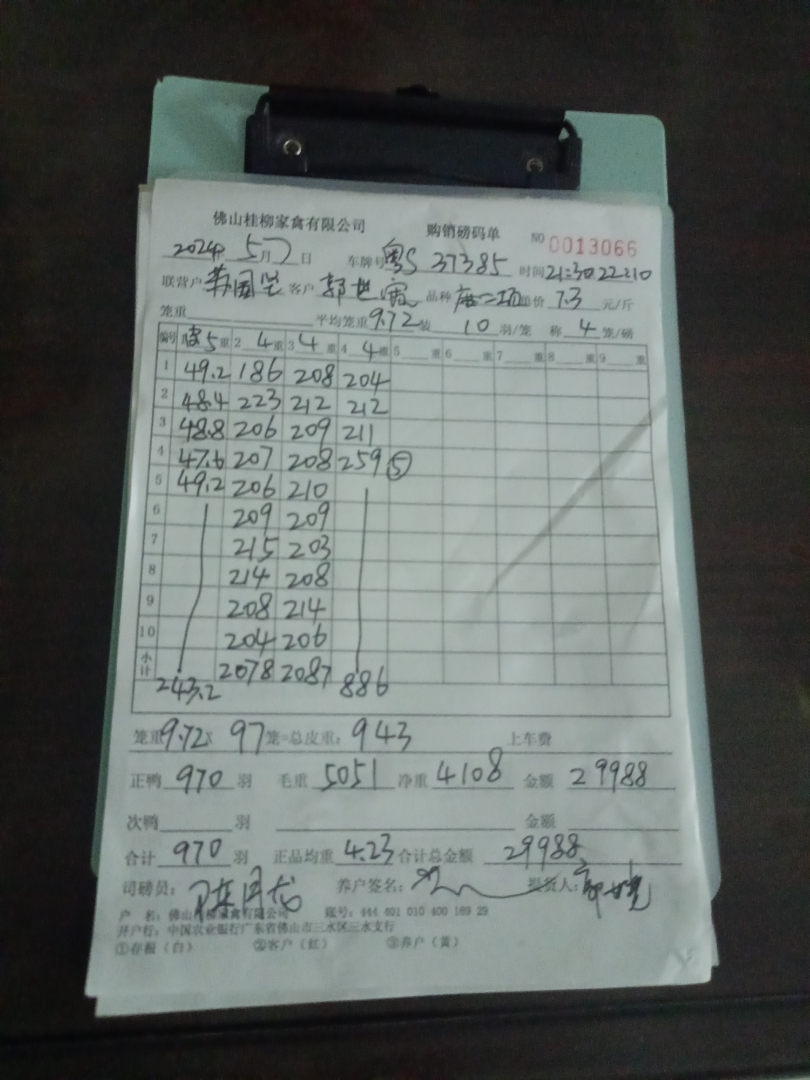 佛山桂柳家禽有限公司 购销磅码单 NO 0013066
2024年 5月 7日 车牌号 粤S 37385 时间 21:30 22:10
联营户 客户 郭世 品种 单价 7.3 元/斤
笼重 平均笼重 9.72 装 10 羽/笼 称 4 笼/磅
编号 皮5重 2 4重 3 4重 4 4重 5 重 6 重 7 重 8 重 9 重
1 49.2 186 208 204
2 48.4 223 212 212
3 48.8 206 209 211
4 47.6 207 208 259 ⑤
5 49.2 206 210
6 209 209
7 215 203
8 214 208
9 208 214
10 204 206
小计 243.2 2078 2087 886
笼重 9.72 X 97 笼=总皮重: 943 上车费
正鸭 970 羽 毛重 5051 净重 4108 金额 29988
次鸭 羽 金额
合计 970 羽 正品均重 4.23 合计总金额 29988
司磅员: 养户签名: 提货人:
户 名: 佛山桂柳家禽有限公司 账号: 444 401 010 400 169 29
开户行: 中国农业银行广东省佛山市三水区三水支行
①存根(白) ②客户(红) ③养户(黄)